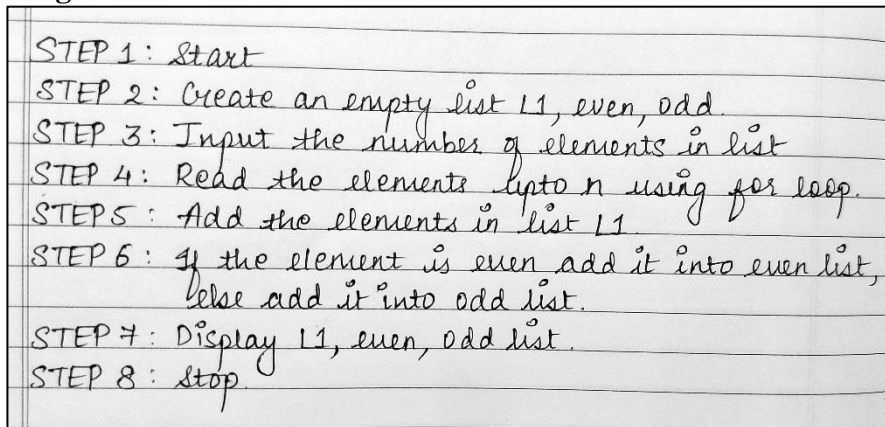 STEP 1: Start
STEP 2: Create an empty list L1, even, odd.
STEP 3: Input the number of elements in list
STEP 4: Read the elements upto n using for loop.
STEP5: Add the elements in list L1.
STEP 6: If the element is even add it into even list,
else add it into odd list.
STEP 7: Display L1, even, odd list.
STEP 8: Stop.